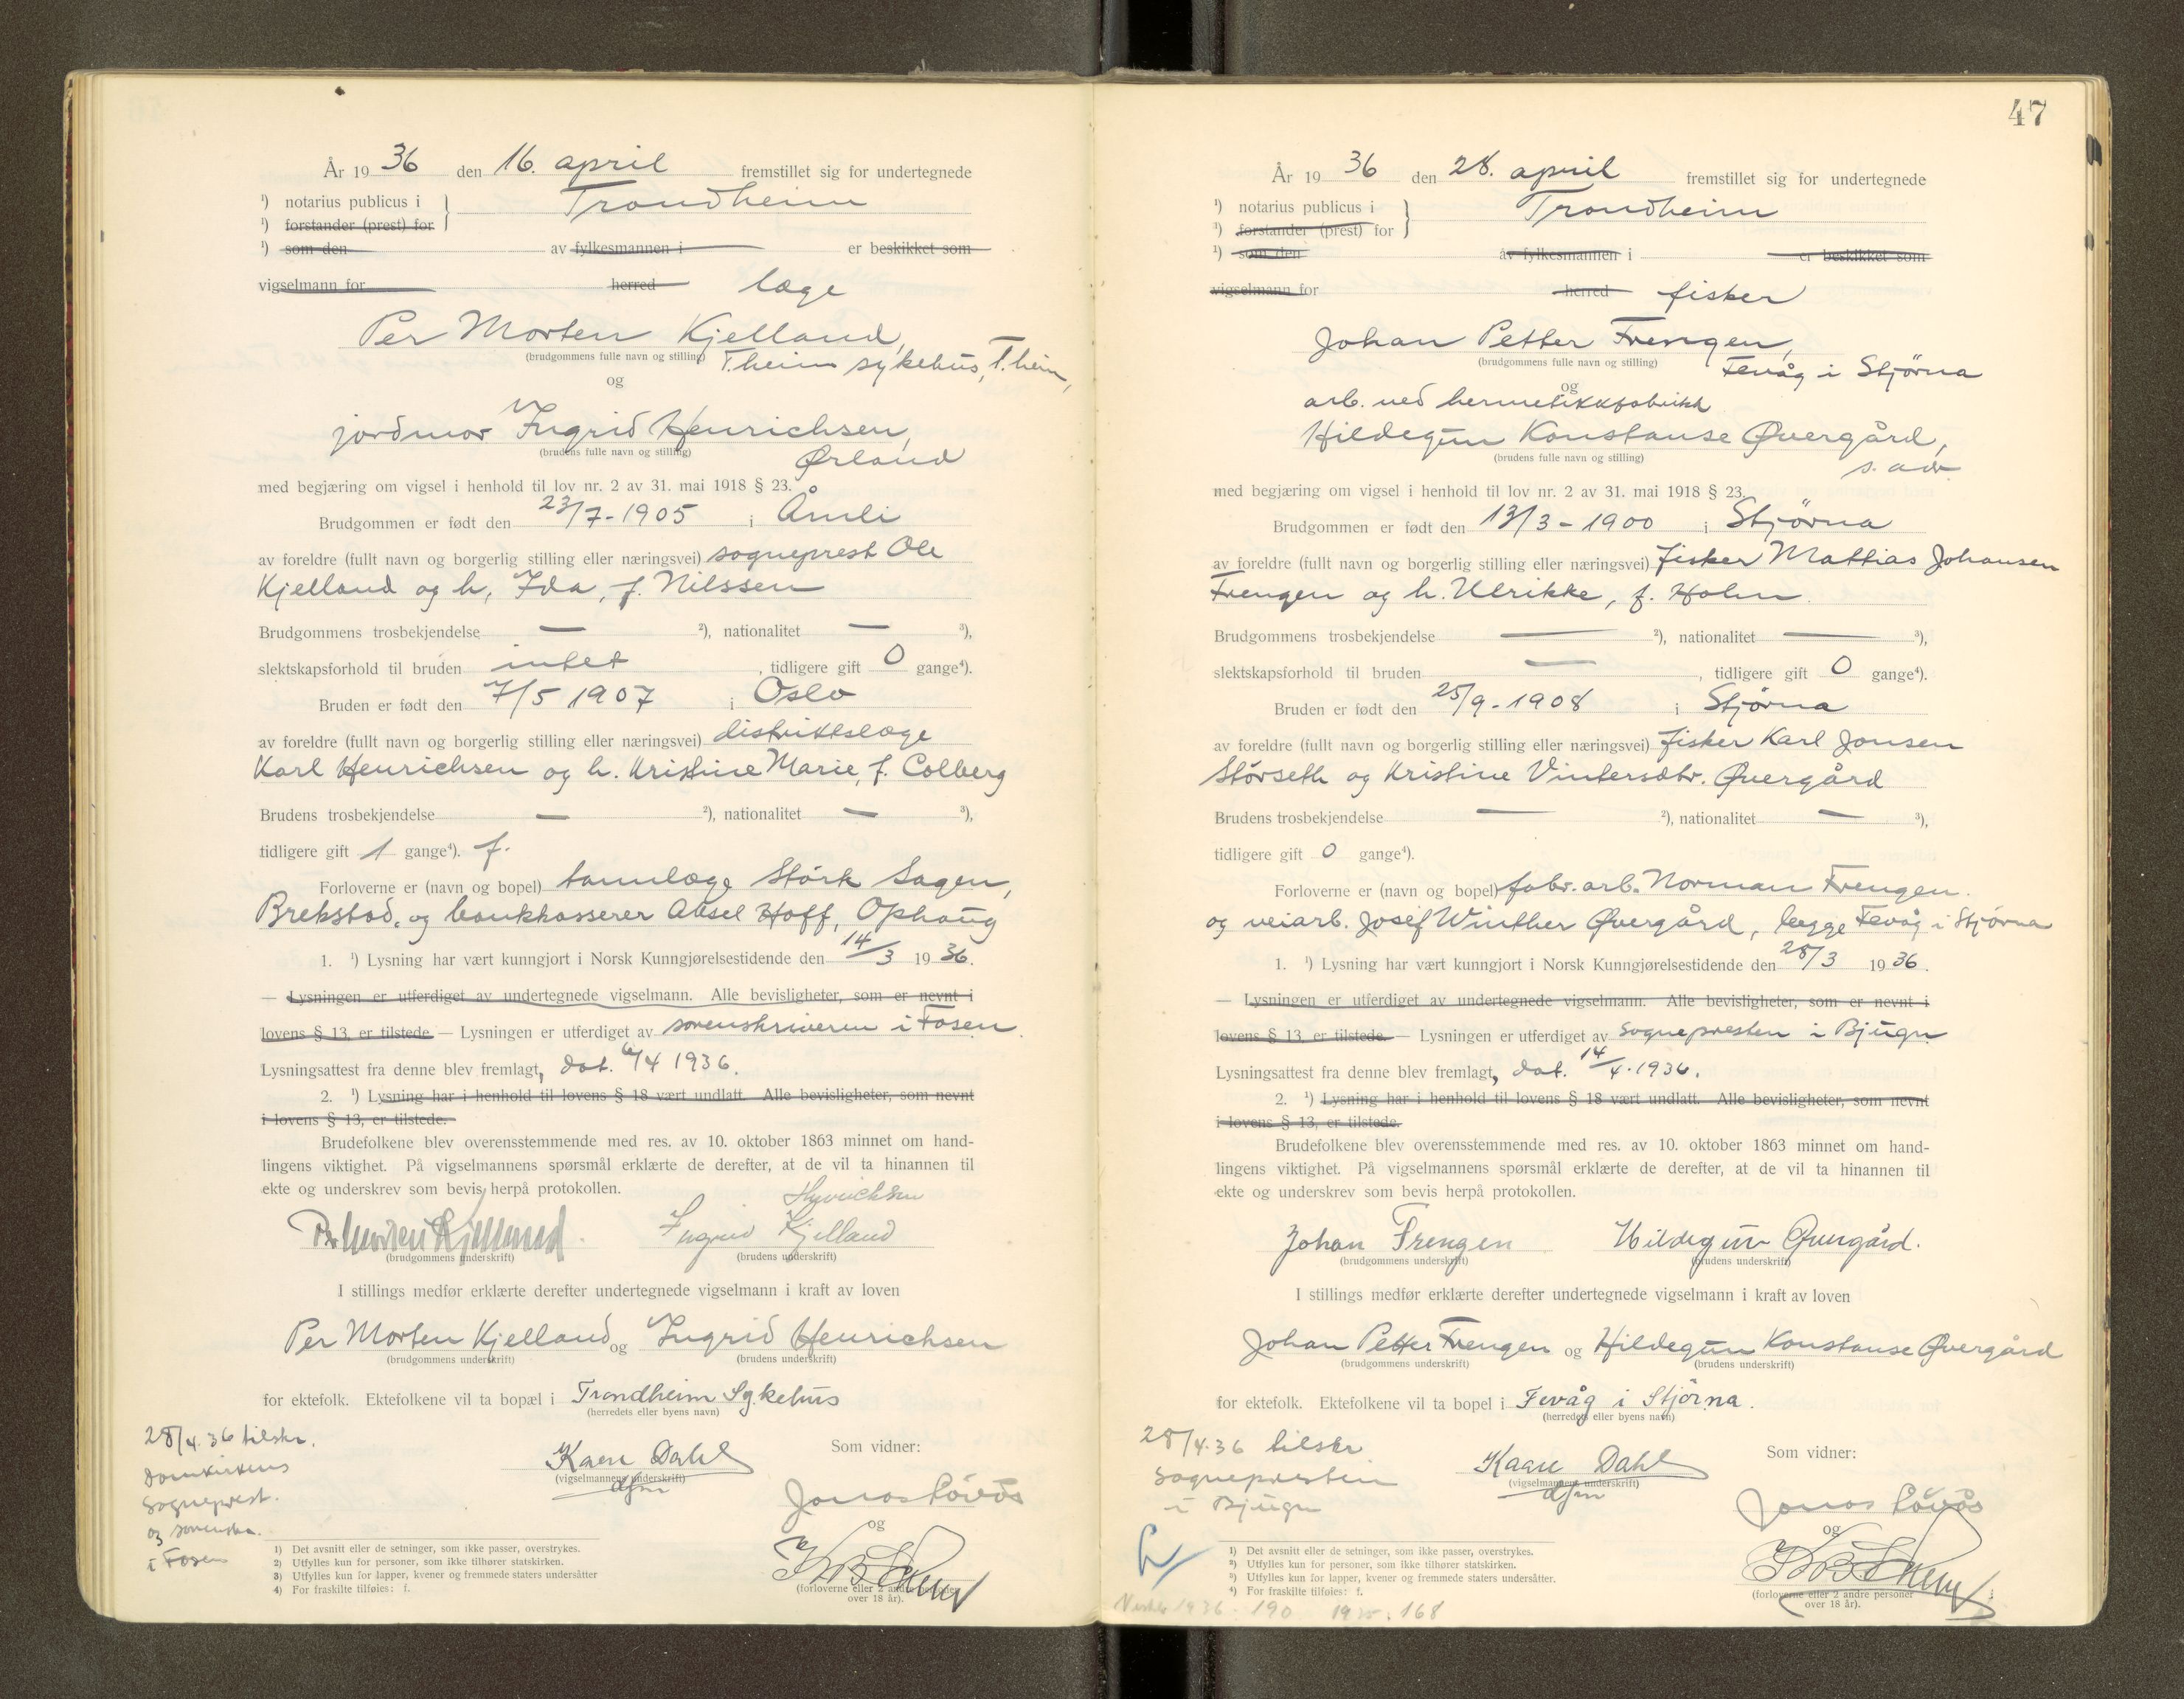 År 19 36 den 16. april fremstillet sig for undertegnede
¹) notarius publicus i } Trondheim
¹) forstander (prest) for
¹) som den av fylkesmannen i er beskikket som
vigselmann for herred læge
Per Morten Kjelland,
(brudgommens fulle navn og stilling) T.heim sykehus, T.heim,
og
jordmor Ingrid Henrichsen,
(brudens fulle navn og stilling) Ørland
med begjæring om vigsel i henhold til lov nr. 2 av 31. mai 1918 § 23.
Brudgommen er født den 23/7-1905 i Åmli
av foreldre (fullt navn og borgerlig stilling eller næringsvei) sogneprest Ole
Kjelland og h. Ida, f. Nilssen
Brudgommens trosbekjendelse — ²), nationalitet — ³),
slektskapsforhold til bruden intet, tidligere gift 0 gange⁴).
Bruden er født den 7/5 1907 i Oslo
av foreldre (fullt navn og borgerlig stilling eller næringsvei) distriktslæge
Karl Henrichsen og h. Kristine Marie, f. Colberg
Brudens trosbekjendelse — ²), nationalitet — ³),
tidligere gift 1 gange⁴). f.
Forloverne er (navn og bopel) tannlæge Størk Sagen,
Brekstad, og bankkasserer Aksel Hoff, Ophaug
1. ¹) Lysning har vært kunngjort i Norsk Kunngjørelsestidende den 14/3 1936.
— Lysningen er utferdiget av undertegnede vigselmann. Alle bevisligheter, som er nevnt i
lovens § 13, er tilstede. — Lysningen er utferdiget av sorenskriveren i Fosen.
Lysningsattest fra denne blev fremlagt, dat. 6/4 1936.
2. ¹) Lysning har i henhold til lovens § 18 vært undlatt. Alle bevisligheter, som nevnt
i lovens § 13, er tilstede.
Brudefolkene blev overensstemmende med res. av 10. oktober 1863 minnet om hand-
lingens viktighet. På vigselmannens spørsmål erklærte de derefter, at de vil ta hinannen til
ekte og underskrev som bevis herpå protokollen.
Henrichsen
Per Morten Kjelland Ingrid Kjelland
(brudgommens underskrift) (brudens underskrift)
I stillings medfør erklærte derefter undertegnede vigselmann i kraft av loven
Per Morten Kjelland og Ingrid Henrichsen
(brudgommens underskrift) (brudens underskrift)
for ektefolk. Ektefolkene vil ta bopæl i Trondheim Sykehus
(herredets eller byens navn)
28/4.36 tilskr.
domkirkens
sogneprest.
og sorenskr.
i Fosen
Kaare Dahl
(vigselmannens underskrift)
dfm
Som vidner:
Jonas Løvås
og
(forloverne eller 2 andre personer
over 18 år).
1) Det avsnitt eller de setninger, som ikke passer, overstrykes.
2) Utfylles kun for personer, som ikke tilhører statskirken.
3) Utfylles kun for lapper, kvener og fremmede staters undersåtter
4) For fraskilte tilføies: f.
47
År 19 36 den 28. april fremstillet sig for undertegnede
¹) notarius publicus i } Trondheim
¹) forstander (prest) for
¹) som den av fylkesmannen i er beskikket som
vigselmann for herred fisker
Johan Petter Frengen,
(brudgommens fulle navn og stilling) Fevåg i Stjørna
og
arb. ved hermetikkfabrikk
Hildegun Konstanse Øvergård,
(brudens fulle navn og stilling) s. adr.
med begjæring om vigsel i henhold til lov nr. 2 av 31. mai 1918 § 23.
Brudgommen er født den 13/3-1900 i Stjørna
av foreldre (fullt navn og borgerlig stilling eller næringsvei) fisker Mattias Johansen
Frengen og h. Ulrikke, f. Holm
Brudgommens trosbekjendelse — ²), nationalitet — ³),
slektskapsforhold til bruden —, tidligere gift 0 gange⁴).
Bruden er født den 25/9-1908 i Stjørna
av foreldre (fullt navn og borgerlig stilling eller næringsvei) fisker Karl Jonsen
Størseth og Kristine Vintersdtr. Øvergård
Brudens trosbekjendelse — ²), nationalitet — ³),
tidligere gift 0 gange⁴).
Forloverne er (navn og bopel) fabr.arb. Norman Frengen
og veiarb. Josef Winther Øvergård, begge Fevåg i Stjørna
1. ¹) Lysning har vært kunngjort i Norsk Kunngjørelsestidende den 28/3 1936.
— Lysningen er utferdiget av undertegnede vigselmann. Alle bevisligheter, som er nevnt i
lovens § 13, er tilstede. — Lysningen er utferdiget av sognepresten i Bjugn
Lysningsattest fra denne blev fremlagt, dat. 14/4.1936.
2. ¹) Lysning har i henhold til lovens § 18 vært undlatt. Alle bevisligheter, som nevnt
i lovens § 13, er tilstede.
Brudefolkene blev overensstemmende med res. av 10. oktober 1863 minnet om hand-
lingens viktighet. På vigselmannens spørsmål erklærte de derefter, at de vil ta hinannen til
ekte og underskrev som bevis herpå protokollen.
Johan Frengen Hildegun Øvergård.
(brudgommens underskrift) (brudens underskrift)
I stillings medfør erklærte derefter undertegnede vigselmann i kraft av loven
Johan Petter Frengen og Hildegun Konstanse Øvergård
(brudgommens underskrift) (brudens underskrift)
for ektefolk. Ektefolkene vil ta bopel i Fevåg i Stjørna.
(herredets eller byens navn)
28/4.36 tilskr
sognepresten
i Bjugn
Kaare Dahl
(vigselmannens underskrift)
dfm
Som vidner:
Jonas Løvås
og
(forloverne eller 2 andre personer
over 18 år).
1) Det avsnitt eller de setninger, som ikke passer, overstrykes.
2) Utfylles kun for personer, som ikke tilhører statskirken.
3) Utfylles kun for lapper, kvener og fremmede staters undersåtter.
4) For fraskilte tilføies: f.
1936 - 190 168